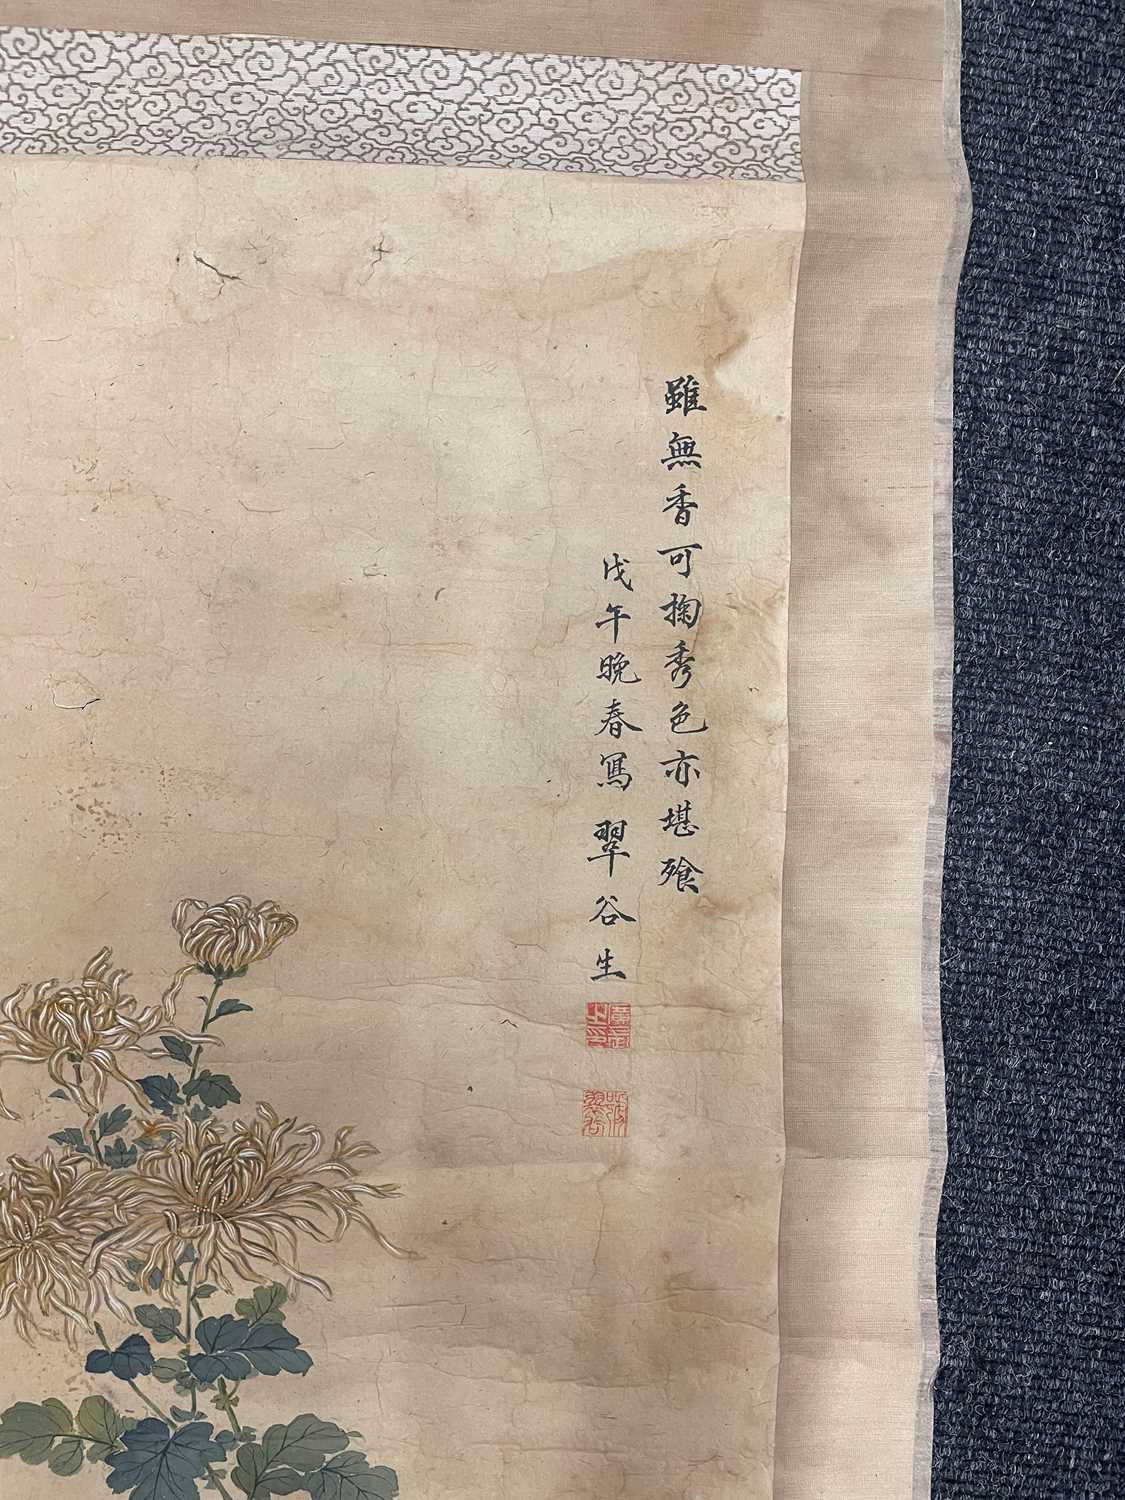 雖無香可掬秀色亦堪飱
戊午晩春寫 翠谷生